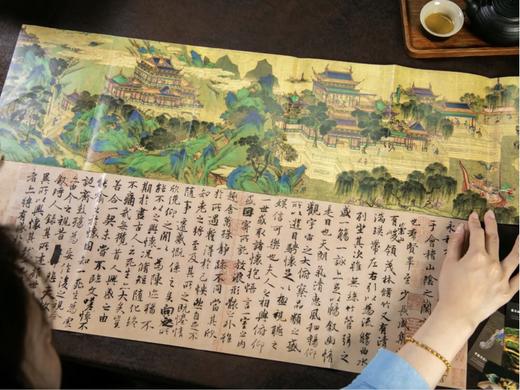 于會稽山陰之蘭
也羣賢畢至少長咸集
峻領茂林脩竹又有清
湍暎帶左右引以為流觴曲水
列坐其次雖無絲竹管弦之
盛一觴一詠亦足以暢敘幽情
是日也天朗氣清惠風和暢仰
觀宇宙之大俯察品類之盛
所以遊目騁懷足以極視聽之
娛信可樂也夫人之相與俯仰
一世或取諸懷抱悟言一室之內
或因寄所託放浪形骸之外雖
趣舍萬殊靜躁不同當其欣
於所遇蹔得於己怏然自足不
知老之將至及其所之既惓情
隨事遷感慨係之矣向之所
欣俛仰之閒以為陳迹猶不
能不以之興懷況脩短隨化終
期於盡古人云死生亦大矣豈
不痛哉每攬昔人興感之由
若合一契未嘗不臨文嗟悼不
能喻之於懷固知一死生為虛
誕齊彭殤為妄作後之視今
亦由今之視昔
敘時人錄其所述
異所以興懷其
者亦將有感